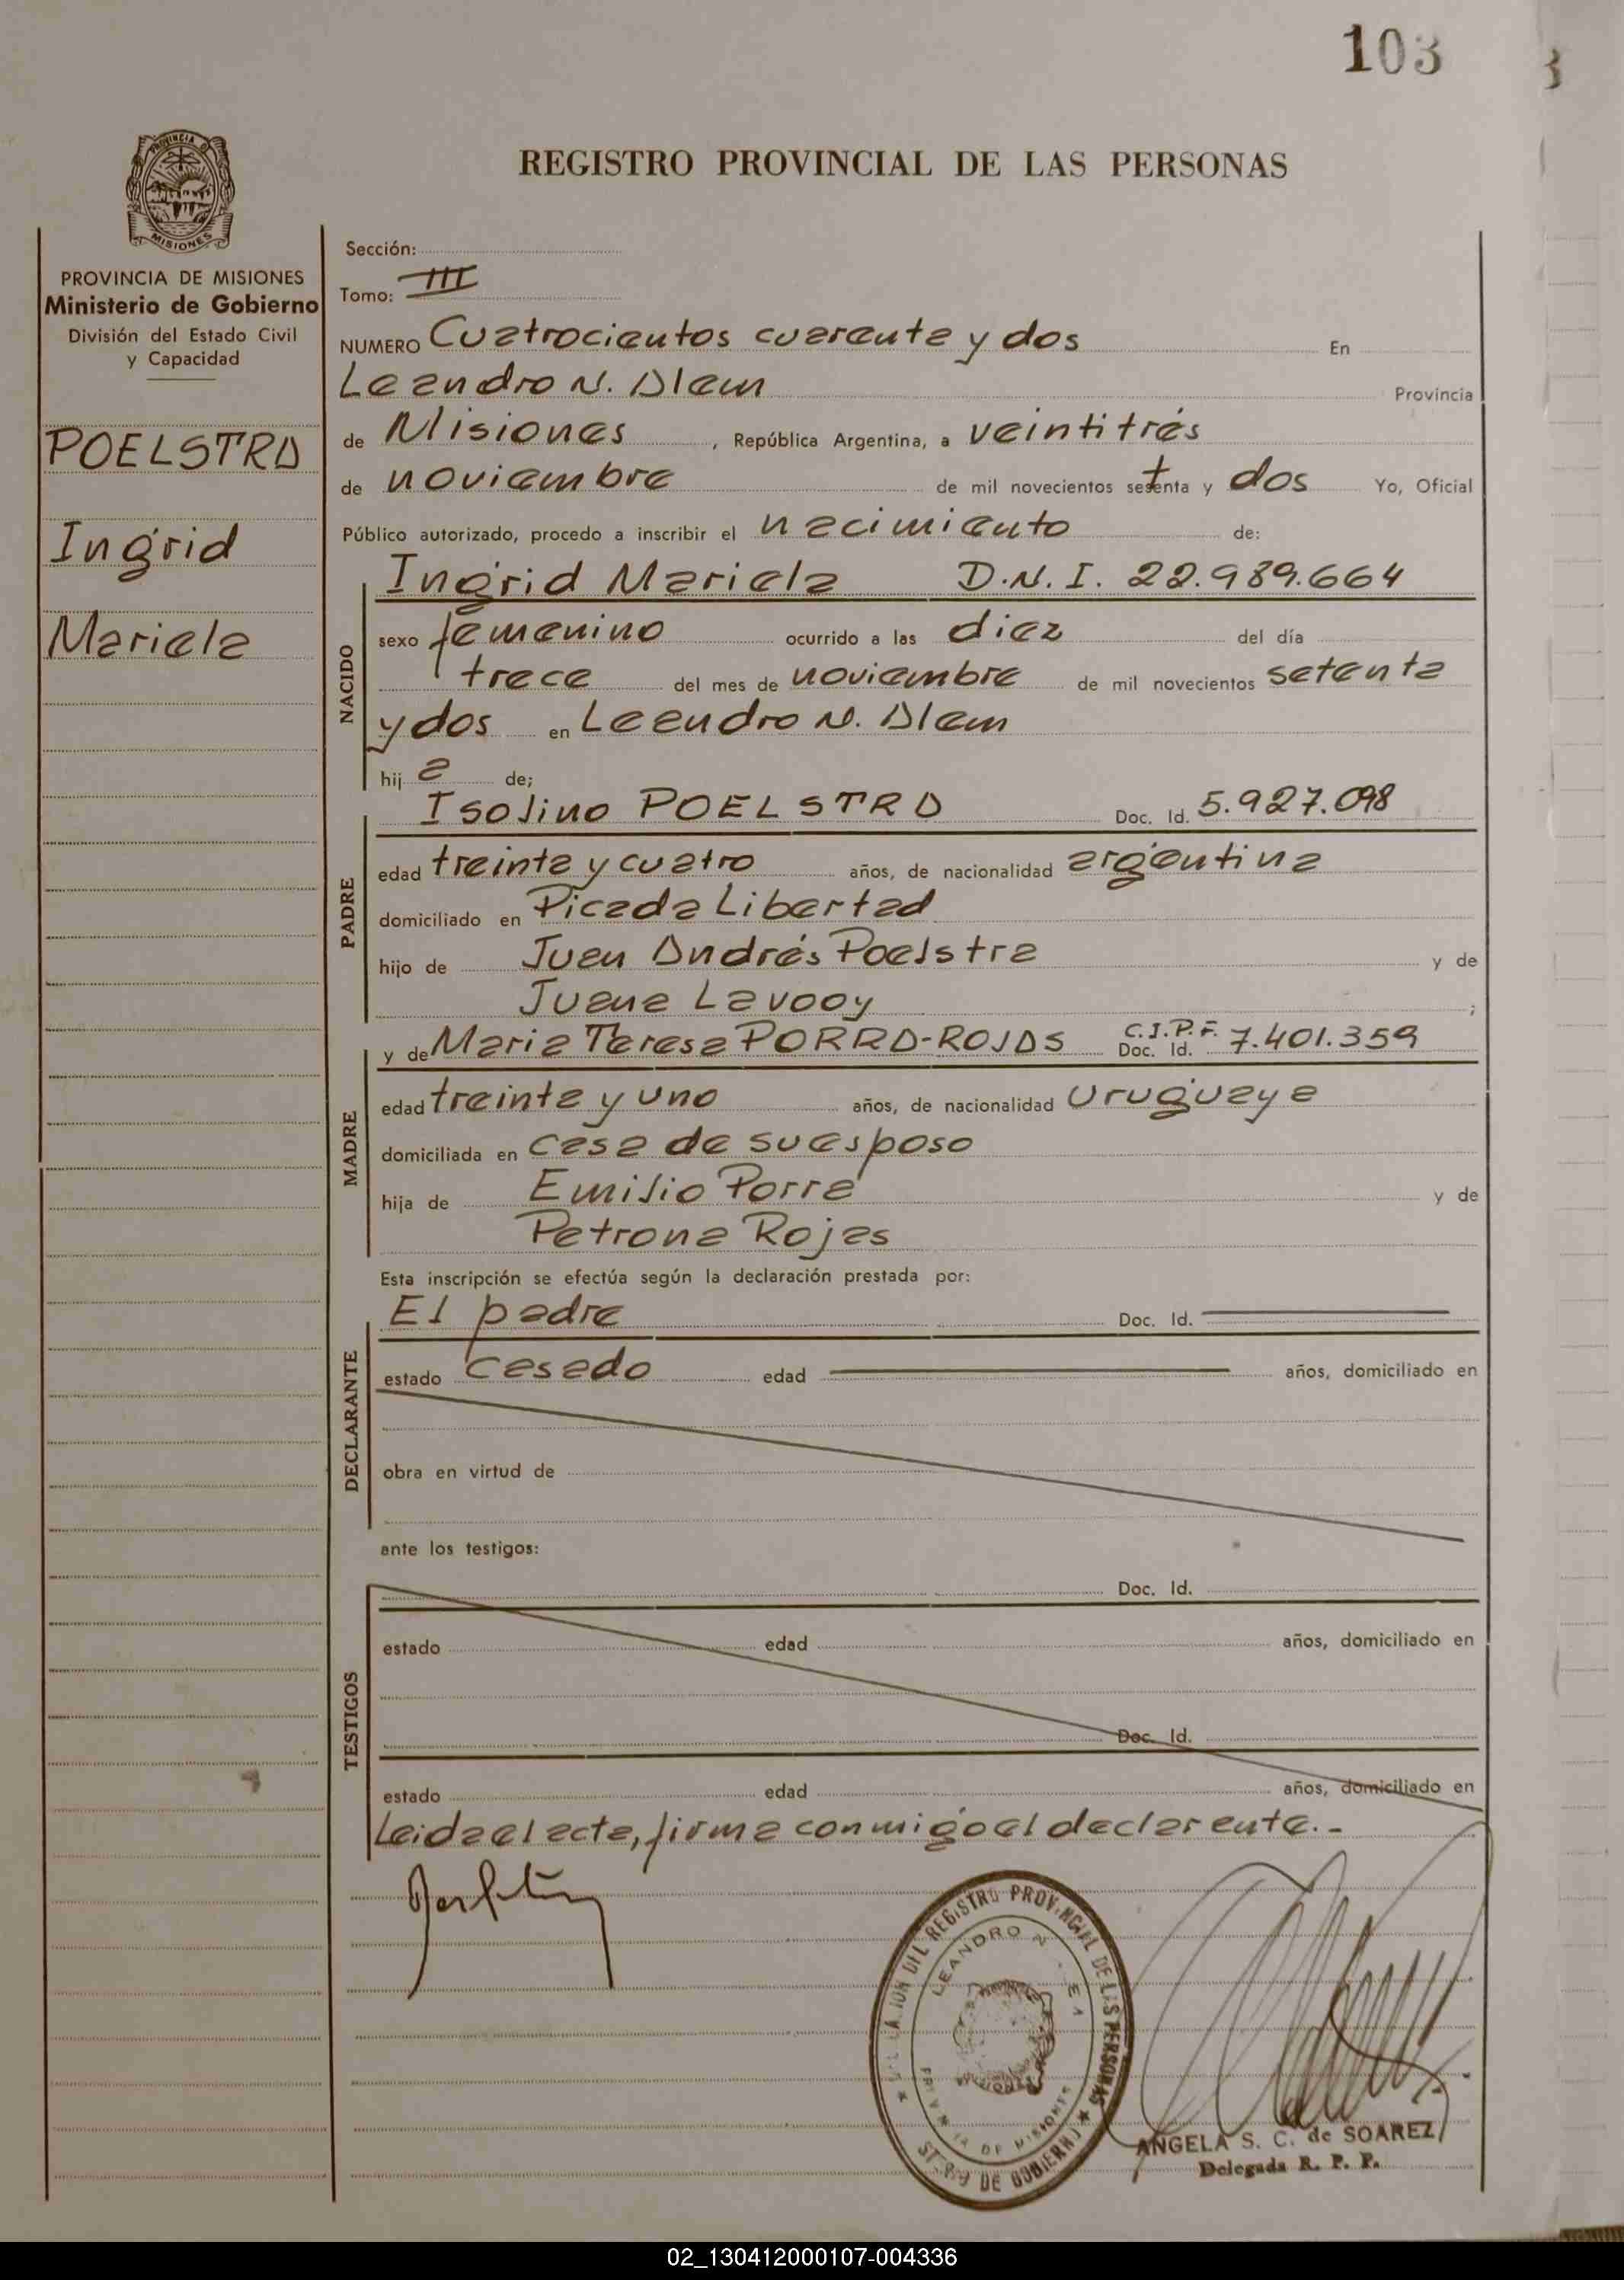 103
REGISTRO PROVINCIAL DE LAS PERSONAS
MISIONES
PROVINCIA DE MISIONES
Ministerio de Gobierno
División del Estado Civil
y Capacidad
POELSTRA
Ingrid
Mariela
Sección:
Tomo: III
NUMERO Cuatrocientos cuarenta y dos En
Leandro N. Alem Provincia
de Misiones, República Argentina, a veintitrés
de noviembre de mil novecientos setenta y dos Yo, Oficial
Público autorizado, procedo a inscribir el nacimiento de:
NACIDO
Ingrid Mariela D.N.I. 22.989.664
sexo femenino ocurrido a las diez del día
trece del mes de noviembre de mil novecientos setenta
y dos en Leandro N. Alem
hija de;
PADRE
Isolino POELSTRA Doc. Id. 5.927.098
edad treinta y cuatro años, de nacionalidad argentina
domiciliado en Picada Libertad
hijo de Juan Andrés Poelstra y de
Juana Lavooy ;
MADRE
y de Maria Teresa PORRA-ROJAS C.I.P.F. Doc. Id. 7.401.359
edad treinta y uno años, de nacionalidad Uruguaya
domiciliada en casa de su esposo
hija de Emilio Porra y de
Petrona Rojas
Esta inscripción se efectúa según la declaración prestada por:
DECLARANTE
El padre Doc. Id.
estado casado edad años, domiciliado en
obra en virtud de
ante los testigos:
TESTIGOS
Doc. Id.
estado edad años, domiciliado en
Doc. Id.
estado edad años, domiciliado en
Leida el acta, firma conmigo el declarante.-
REGISTRO PROVINCIAL DE LAS PERSONAS
LEANDRO N.
DE MISIONES
DE GOBIERNO
ANGELA S. C. de SOAREZ
Delegada R. P. P.
02_130412000107-004336